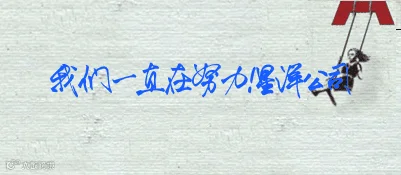 我们一直在努力!星洋公司